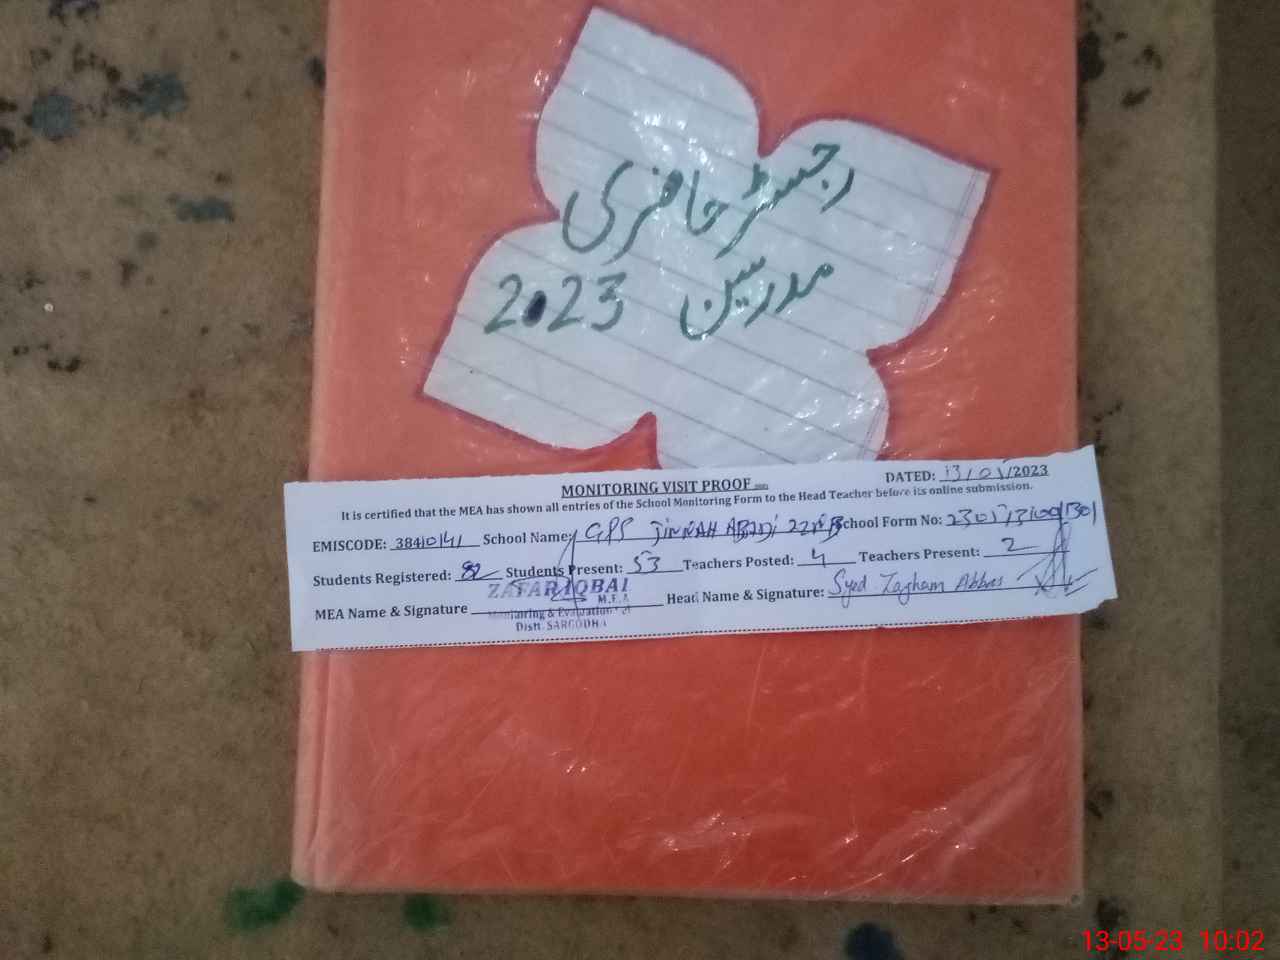 رجسٹر حاضری
مدرسین 2023
MONITORING VISIT PROOF
DATED: 13/05/2023
It is certified that the MEA has shown all entries of the School Monitoring Form to the Head Teacher before its online submission.
EMISCODE: 38410141 School Name: GPS JINNAH ABADI School Form No:
Students Registered: 82 Students Present: 53 Teachers Posted: 4 Teachers Present: 2
ZAFAR IQBAL
M.E.A
MEA Name & Signature Head Name & Signature: Syed Zagham Abbas
Monitoring & Evaluation
Distt. SARGODHA
13-05-23 10:02